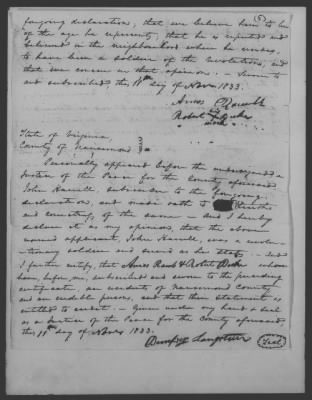 foregoing declaration, that we believe him to be (5)
of the age he represents, that he is reputed and
believed in the neighbourhood where he resides,
to have been a soldier of the revolution, and
that we concur in that opinion. - Sworn to
and subscribed, this 11th day of Novr 1833.
Amos
Robert his mark
State of Virginia,
County of Nansemond
Personally appeared before the undersigned a
Justice of the Peace for the County aforesaid
John Harrell, subscriber to the foregoing
declaration, and made oath to the truth
and of the same - And I hereby
declare it as my opinion, that the above
named applicant, John Harrell, was a revolu-
tionary soldier and served as he states - And
I further certify, that Amos & Robert whose
have, before me, subscribed and sworn to the preceding
certificate, are residents of Nansemond County
and are credible persons, and that their statement is
entitled to credit. - Given under my hand & seal
as a Justice of the Peace for the County aforesaid,
this 11th day of Novr 1833.
Seal